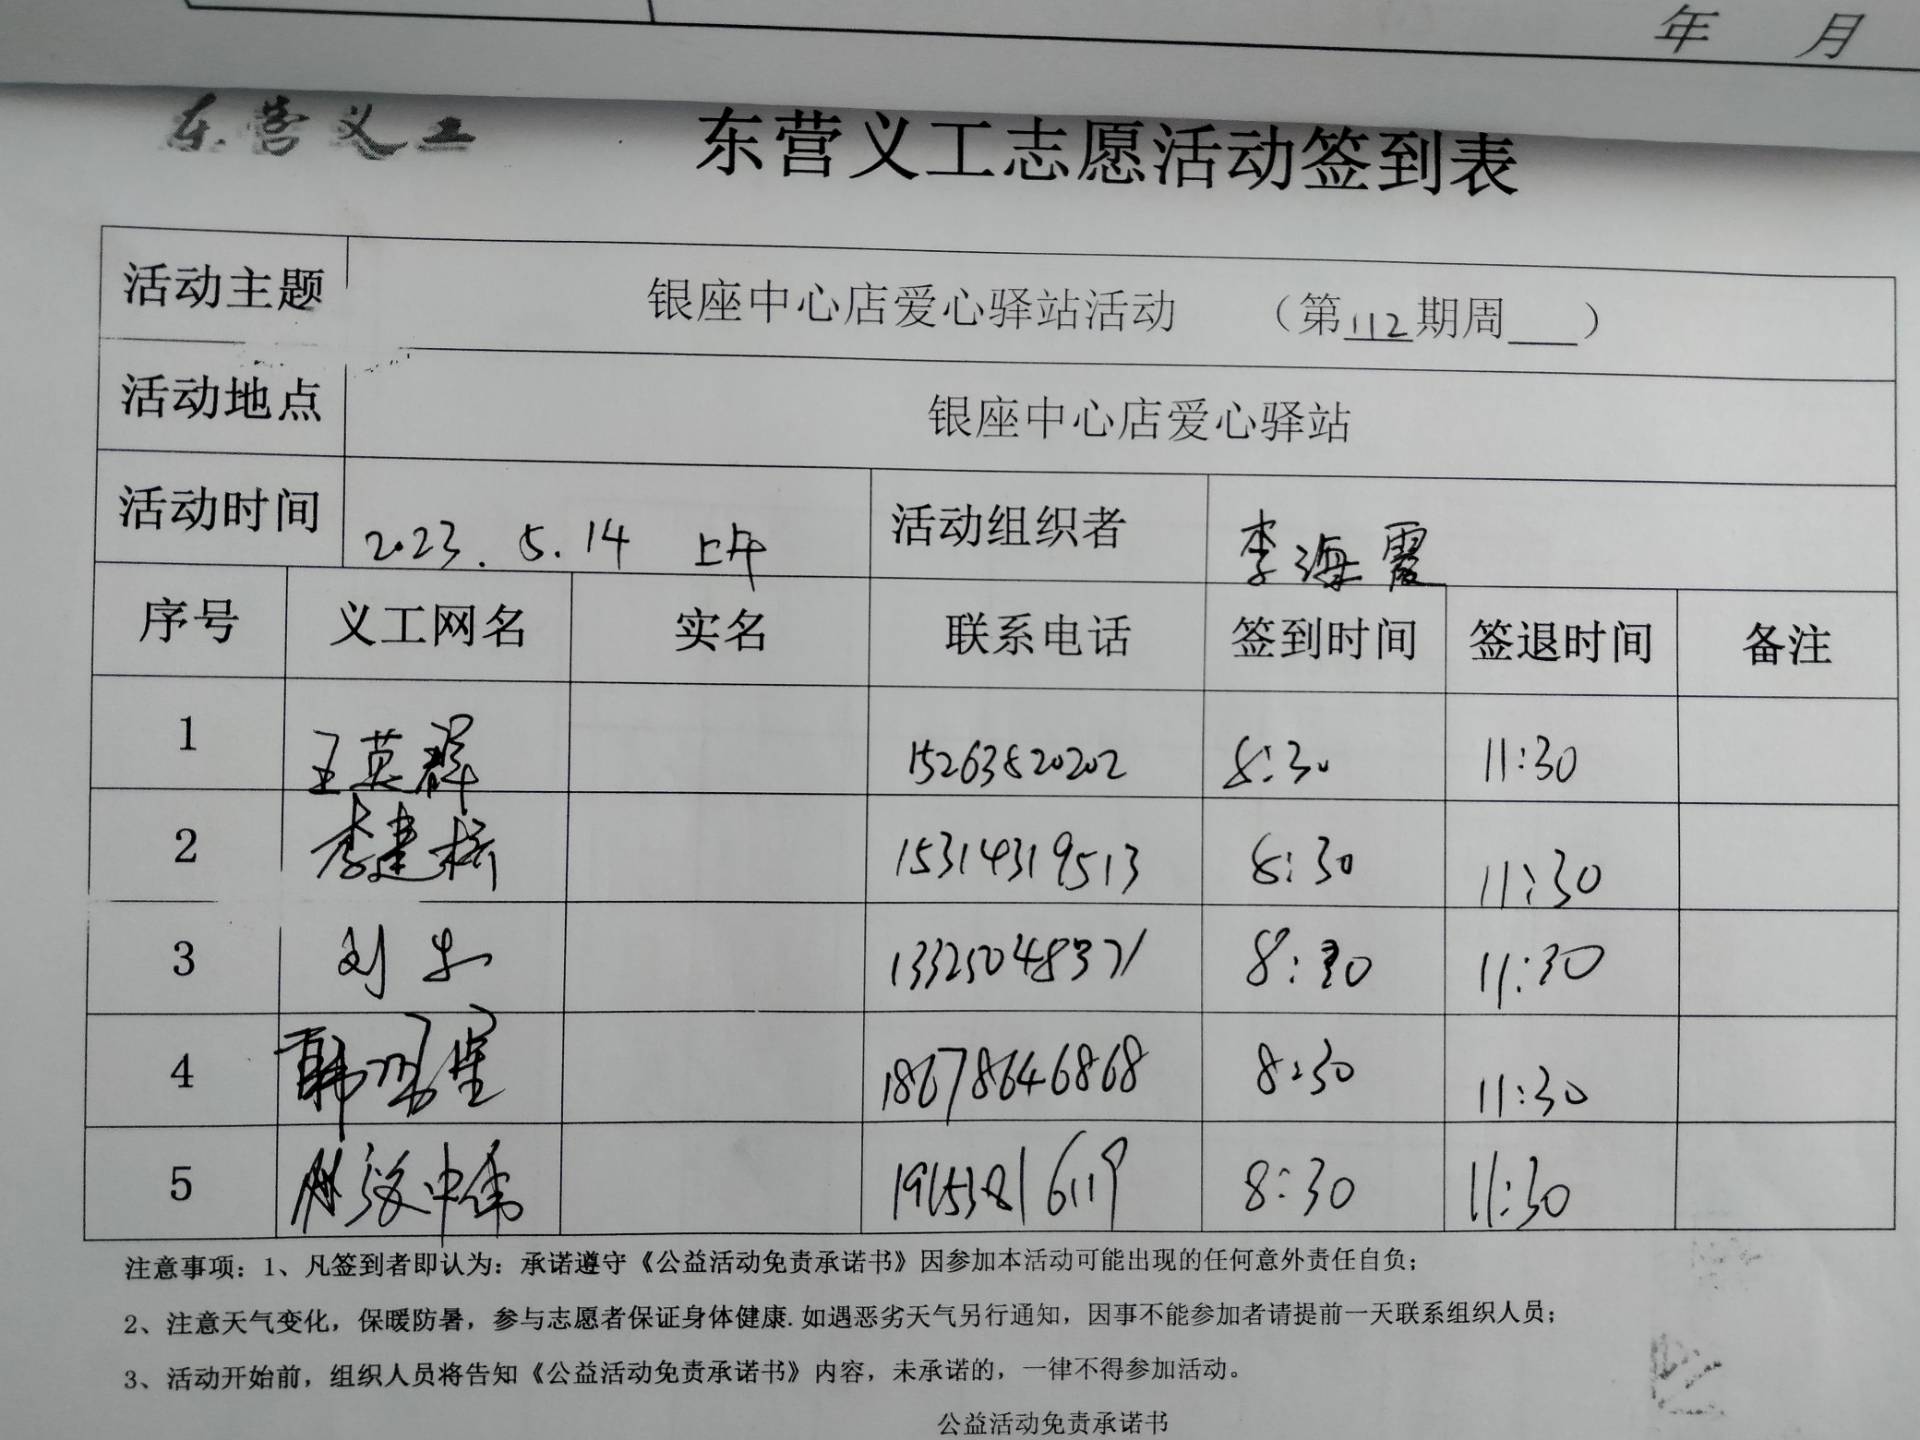 年 月
东营义工 东营义工志愿活动签到表
活动主题 银座中心店爱心驿站活动 （第112期周___）
活动地点 银座中心店爱心驿站
活动时间 2023.5.14 上午 活动组织者 李海霞
序号 义工网名 实名 联系电话 签到时间 签退时间 备注
1 王英群 15263820202 8:30 11:30
2 李建桥 15314319513 8:30 11:30
3 刘 13325048371 8:30 11:30
4 韩 星 18678646868 8:30 11:30
5 19153816119 8:30 11:30
注意事项：1、凡签到者即认为：承诺遵守《公益活动免责承诺书》因参加本活动可能出现的任何意外责任自负；
2、注意天气变化，保暖防暑，参与志愿者保证身体健康.如遇恶劣天气另行通知，因事不能参加者请提前一天联系组织人员；
3、活动开始前，组织人员将告知《公益活动免责承诺书》内容，未承诺的，一律不得参加活动。
公益活动免责承诺书